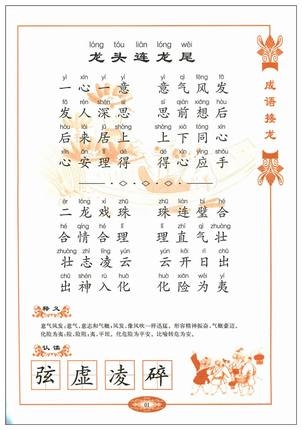 lóng tóu lián lóng wěi
龙头连龙尾
成语接龙
yì xīn yí yì yì qì fēng fā
一心一意 意气风发
fā rén shēn sī sī qián xiǎng hòu
发人深思 思前想后
hòu lái jū shàng shàng xià tóng xīn
后来居上 上下同心
xīn ān lǐ dé dé xīn yìng shǒu
心安理得 得心应手
èr lóng xì zhū zhū lián bì hé
二龙戏珠 珠连璧合
hé qíng hé lǐ lǐ zhí qì zhuàng
合情合理 理直气壮
zhuàng zhì líng yún yún kāi rì chū
壮志凌云 云开日出
chū shén rù huà huà xiǎn wéi yí
出神入化 化险为夷
释义
意气风发:意气,意志和气概;风发,像风吹一样迅猛。形容精神振奋,气概豪迈。
化险为夷:险,险阻;夷,平坦。化危险为平安。比喻转危为安。
认读
弦 虚 凌 碎
01